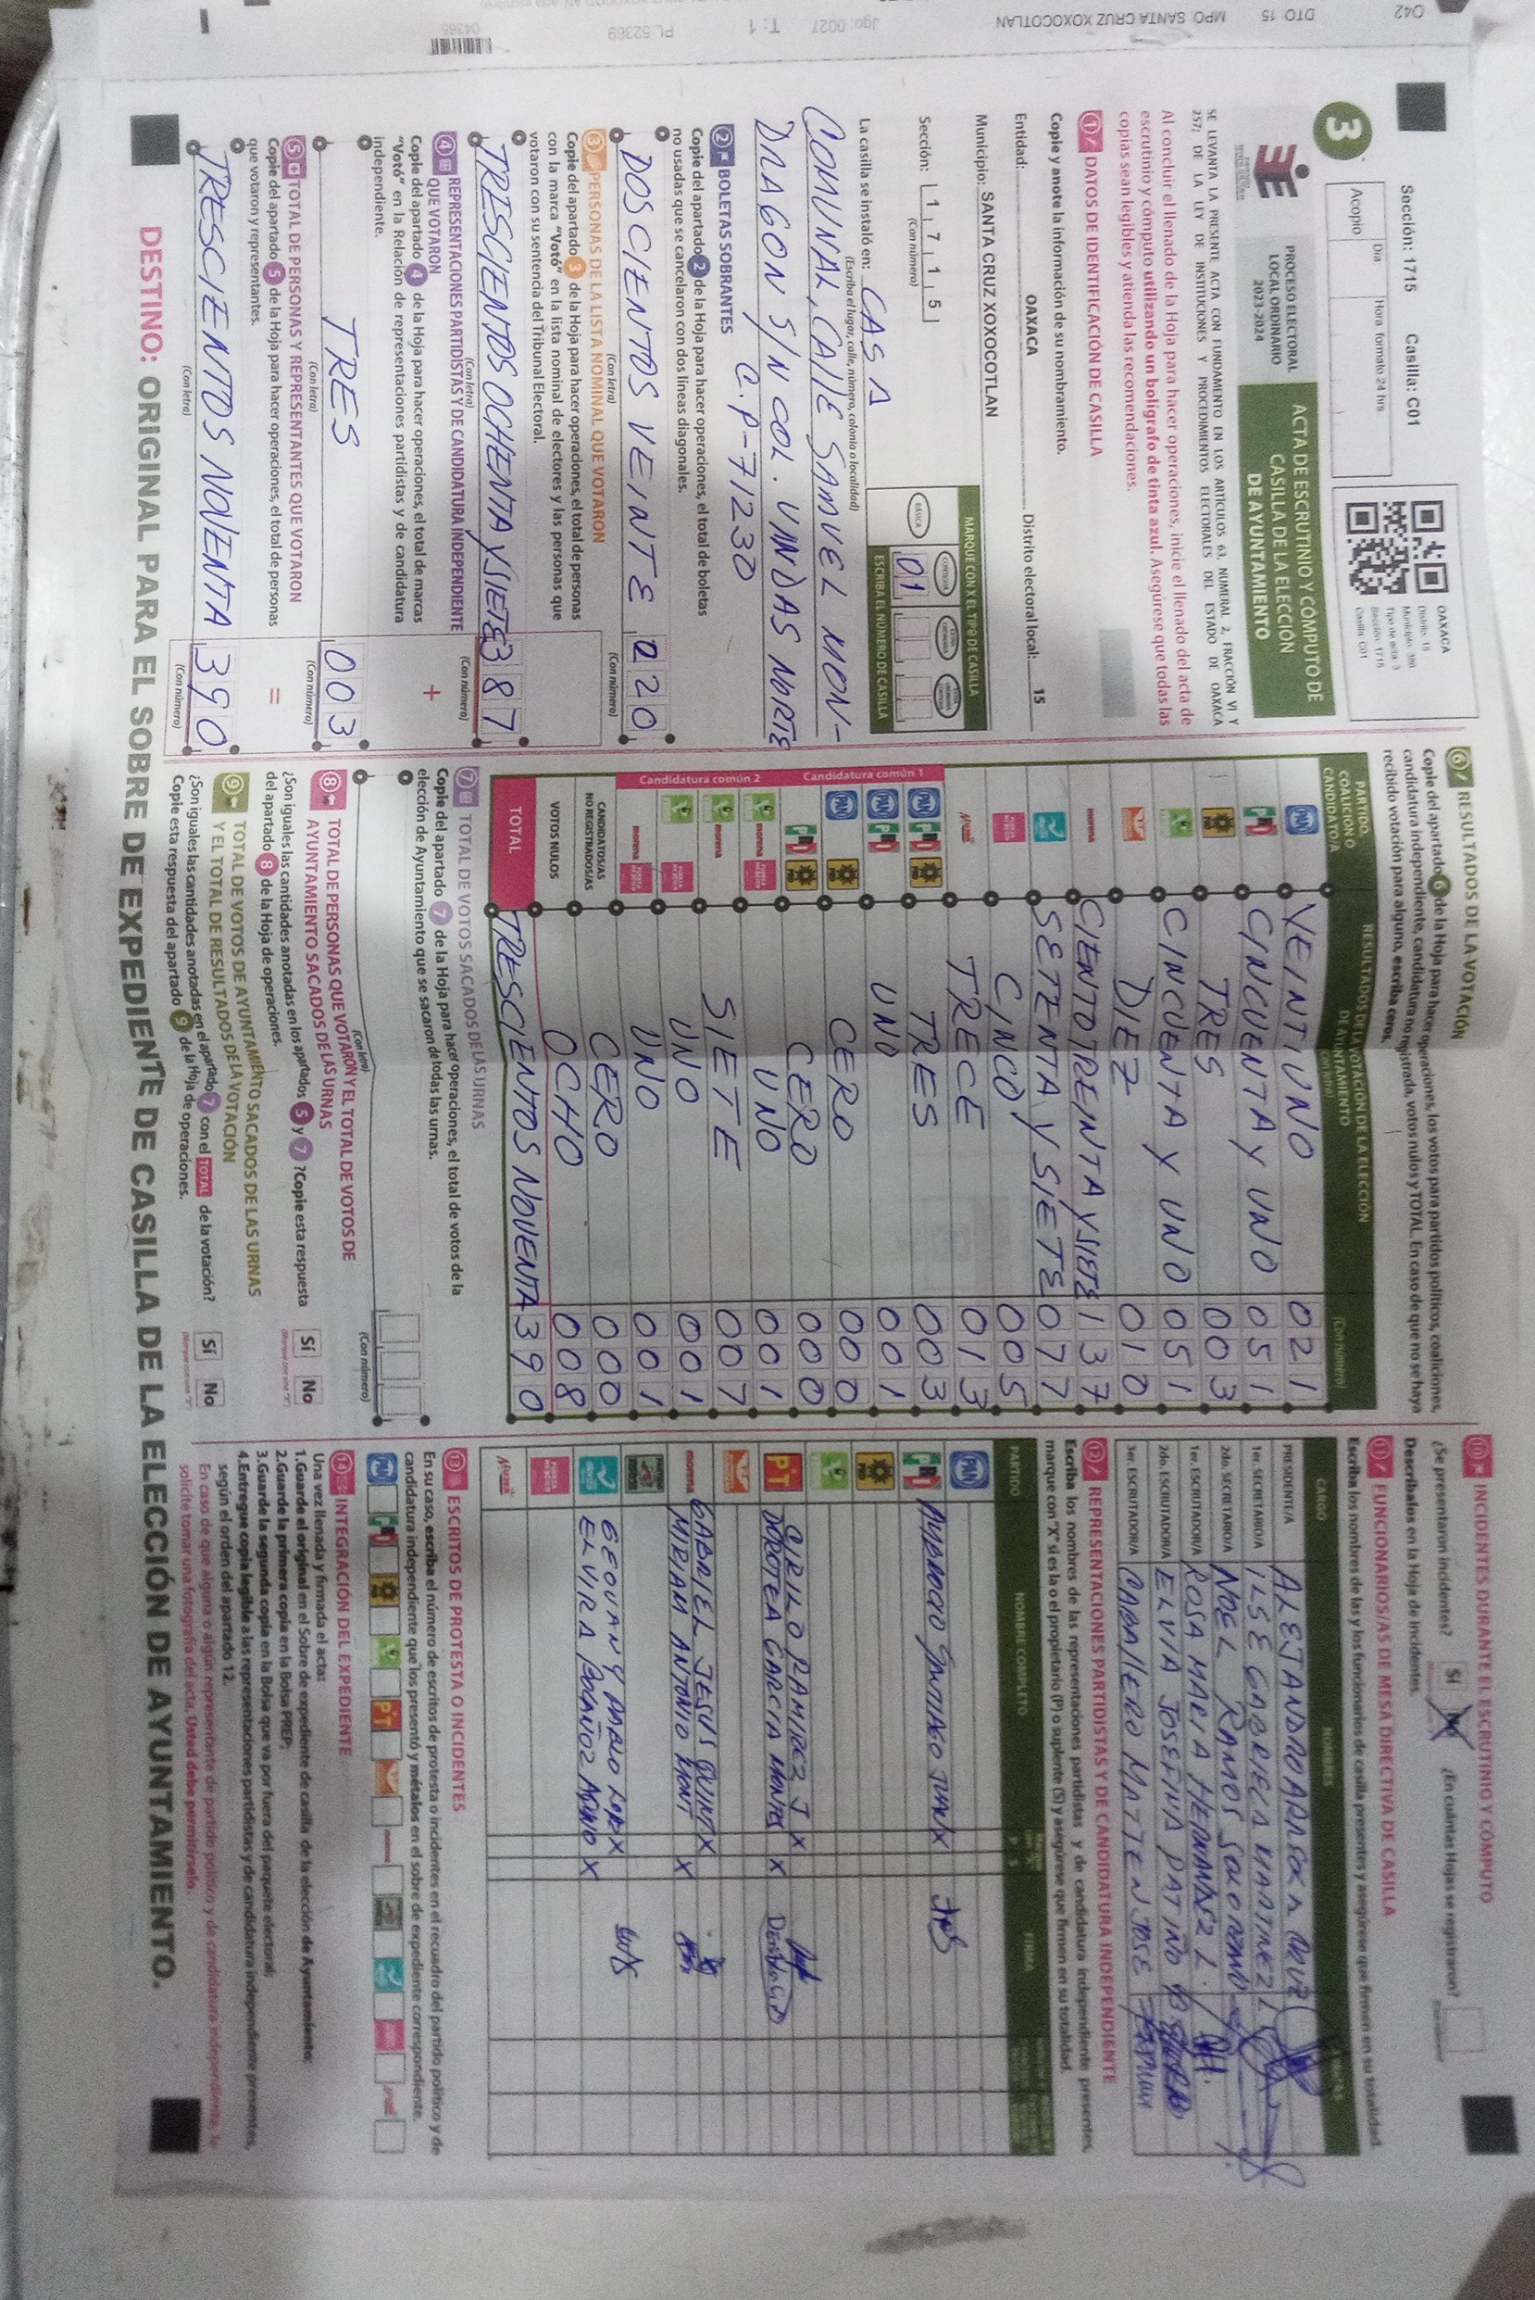 Sección: 1715 Casilla: C01
Acopio
Día
Hora formato 24 hrs
OAXACA
Distrito: 15
Tipo de acta 3
Sección: 1715
Casilla: C01
3
PROCESO ELECTORAL
LOCAL ORDINARIO
2023-2024
ACTA DE ESCRUTINIO Y CÓMPUTO DE
CASILLA DE LA ELECCIÓN
DE AYUNTAMIENTO
SE LEVANTA LA PRESENTE ACTA CON FUNDAMENTO EN LOS ARTÍCULOS 63, NUMERAL 2, FRACCIÓN VI Y
257; DE LA LEY DE INSTITUCIONES Y PROCEDIMIENTOS ELECTORALES DEL ESTADO DE OAXACA
Al concluir el llenado de la Hoja para hacer operaciones, inicie el llenado del acta de
escrutinio y cómputo utilizando un bolígrafo de tinta azul. Asegúrese que todas las
copias sean legibles y atienda las recomendaciones.
1 DATOS DE IDENTIFICACIÓN DE CASILLA
Copie y anote la información de su nombramiento.
Entidad: OAXACA Distrito electoral local: 15
Municipio: SANTA CRUZ XOXOCOTLAN
Sección: 1 7 1 5
(Con número)
MARQUE CON X EL TIPO DE CASILLA
BÁSICA
01
ESCRIBA EL NÚMERO DE CASILLA
La casilla se instaló en: CASA
(Escriba el lugar, calle, número, colonia o localidad)
COMUNAL, CALLE SAMUEL MON-
DRAGON S/N COL. UNIDAS NORTE
C.P-71230
2 BOLETAS SOBRANTES
Copie del apartado 2 de la Hoja para hacer operaciones, el total de boletas
no usadas que se cancelaron con dos líneas diagonales.
DOSCIENTOS VEINTE 220
(Con letra) (Con número)
3 PERSONAS DE LA LISTA NOMINAL QUE VOTARON
Copie del apartado 3 de la Hoja para hacer operaciones, el total de personas
con la marca "Votó" en la lista nominal de electores y las personas que
votaron con su sentencia del Tribunal Electoral.
TRESCIENTOS OCHENTA Y SIETE 387
(Con letra) (Con número)
4 REPRESENTACIONES PARTIDISTAS Y DE CANDIDATURA INDEPENDIENTE
QUE VOTARON
+
Copie del apartado 4 de la Hoja para hacer operaciones, el total de marcas
"Votó" en la Relación de representaciones partidistas y de candidatura
independiente.
TRES 003
(Con letra) (Con número)
5 TOTAL DE PERSONAS Y REPRESENTANTES QUE VOTARON
=
Copie del apartado 5 de la Hoja para hacer operaciones, el total de personas
que votaron y representantes.
TRESCIENTOS NOVENTA 390
(Con letra) (Con número)
6 RESULTADOS DE LA VOTACIÓN
Copie del apartado 6 de la Hoja para hacer operaciones, los votos para partidos políticos, coaliciones,
candidatura independiente, candidatura no registrada, votos nulos y TOTAL. En caso de que no se haya
recibido votación para alguno, escriba ceros.
PARTIDO,
COALICIÓN O
CANDIDATO/A
RESULTADOS DE LA VOTACIÓN DE LA ELECCIÓN
DE AYUNTAMIENTO
(Con letra) (Con número)
PAN VEINTIUNO 021
PRI CINCUENTA Y UNO 051
PRD TRES 003
CINCUENTA Y UNO 051
DIEZ 010
morena CIENTO TREINTA Y SIETE 137
SETENTA Y SIETE 077
CINCO 005
TRECE 013
Candidatura común 1
PAN PRI PRD TRES 003
PAN PRI UNO 001
PAN PRD CERO 000
PRI PRD CERO 000
Candidatura común 2
morena UNO 001
morena SIETE 007
UNO 001
morena UNO 001
CANDIDATOS/AS
NO REGISTRADOS/AS CERO 000
VOTOS NULOS OCHO 008
TOTAL TRESCIENTOS NOVENTA 390
7 TOTAL DE VOTOS SACADOS DE LAS URNAS
Copie del apartado 7 de la Hoja para hacer operaciones, el total de votos de la
elección de Ayuntamiento que se sacaron de todas las urnas.
(Con letra) (Con número)
8 TOTAL DE PERSONAS QUE VOTARON Y EL TOTAL DE VOTOS DE
AYUNTAMIENTO SACADOS DE LAS URNAS
¿Son iguales las cantidades anotadas en los apartados 5 y 7 ? Copie esta respuesta
del apartado 8 de la Hoja de operaciones.
Sí No
9 TOTAL DE VOTOS DE AYUNTAMIENTO SACADOS DE LAS URNAS
Y EL TOTAL DE RESULTADOS DE LA VOTACIÓN
¿Son iguales las cantidades anotadas en el apartado 7 con el TOTAL de la votación?
Copie esta respuesta del apartado 9 de la Hoja de operaciones.
Sí No
10 INCIDENTES DURANTE EL ESCRUTINIO Y CÓMPUTO
¿Se presentaron incidentes? Sí No ¿En cuántas Hojas se registraron?
Descríbalos en la Hoja de Incidentes.
11 FUNCIONARIOS/AS DE MESA DIRECTIVA DE CASILLA
Escriba los nombres de las y los funcionarios de casilla presentes y asegúrese que firmen en su totalidad.
CARGO NOMBRES
PRESIDENTE/A ALEJANDRO CRUZ
1er. SECRETARIO/A ILSE GABRIELA MARTINEZ L
2do. SECRETARIO/A NOEL RAMOS
1er. ESCRUTADOR/A ROSA MARIA HERNANDEZ L.
2do. ESCRUTADOR/A ELVIA JOSEFINA PATIÑO
3er. ESCRUTADOR/A CABALLERO MATTEN JOSE
12 REPRESENTACIONES PARTIDISTAS Y DE CANDIDATURA INDEPENDIENTE
Escriba los nombres de las representaciones partidistas y de candidatura independiente presentes,
marque con "X" si es la o el propietario (P) o suplente (S) y asegúrese que firmen en su totalidad.
PARTIDO NOMBRE COMPLETO P S FIRMA
PAN
PRI AMBROCIO SANTIAGO JUAN X
PRD
PT CIRILO RAMIREZ J X
DOROTEA GARCIA MONTES X
morena GABRIEL JESUS QUINT X
MIRIAM ANTONIO MONT X
GEOVANY PABLO LOPEZ X
ELVIRA X
13 ESCRITOS DE PROTESTA O INCIDENTES
En su caso, escriba el número de escritos de protesta o incidentes en el recuadro del partido político y de
candidatura independiente que los presentó y métalos en el sobre de expediente correspondiente.
14 INTEGRACIÓN DEL EXPEDIENTE
Una vez llenada y firmada el acta:
1. Guarde el original en el Sobre de expediente de casilla de la elección de Ayuntamiento;
2. Guarde la primera copia en la Bolsa PREP;
3. Guarde la segunda copia en la Bolsa que va por fuera del paquete electoral;
4. Entregue copia legible a las representaciones partidistas y de candidatura independiente presentes,
según el orden del apartado 12.
En caso de que alguna o algún representante de partido político y de candidatura independiente, le
solicite tomar una fotografía del acta, Usted debe permitírselo.
DESTINO: ORIGINAL PARA EL SOBRE DE EXPEDIENTE DE CASILLA DE LA ELECCIÓN DE AYUNTAMIENTO.
042 DTO 15 MPO SANTA CRUZ XOXOCOTLAN Jgo: 0027 T: 1 PL 52369 04365